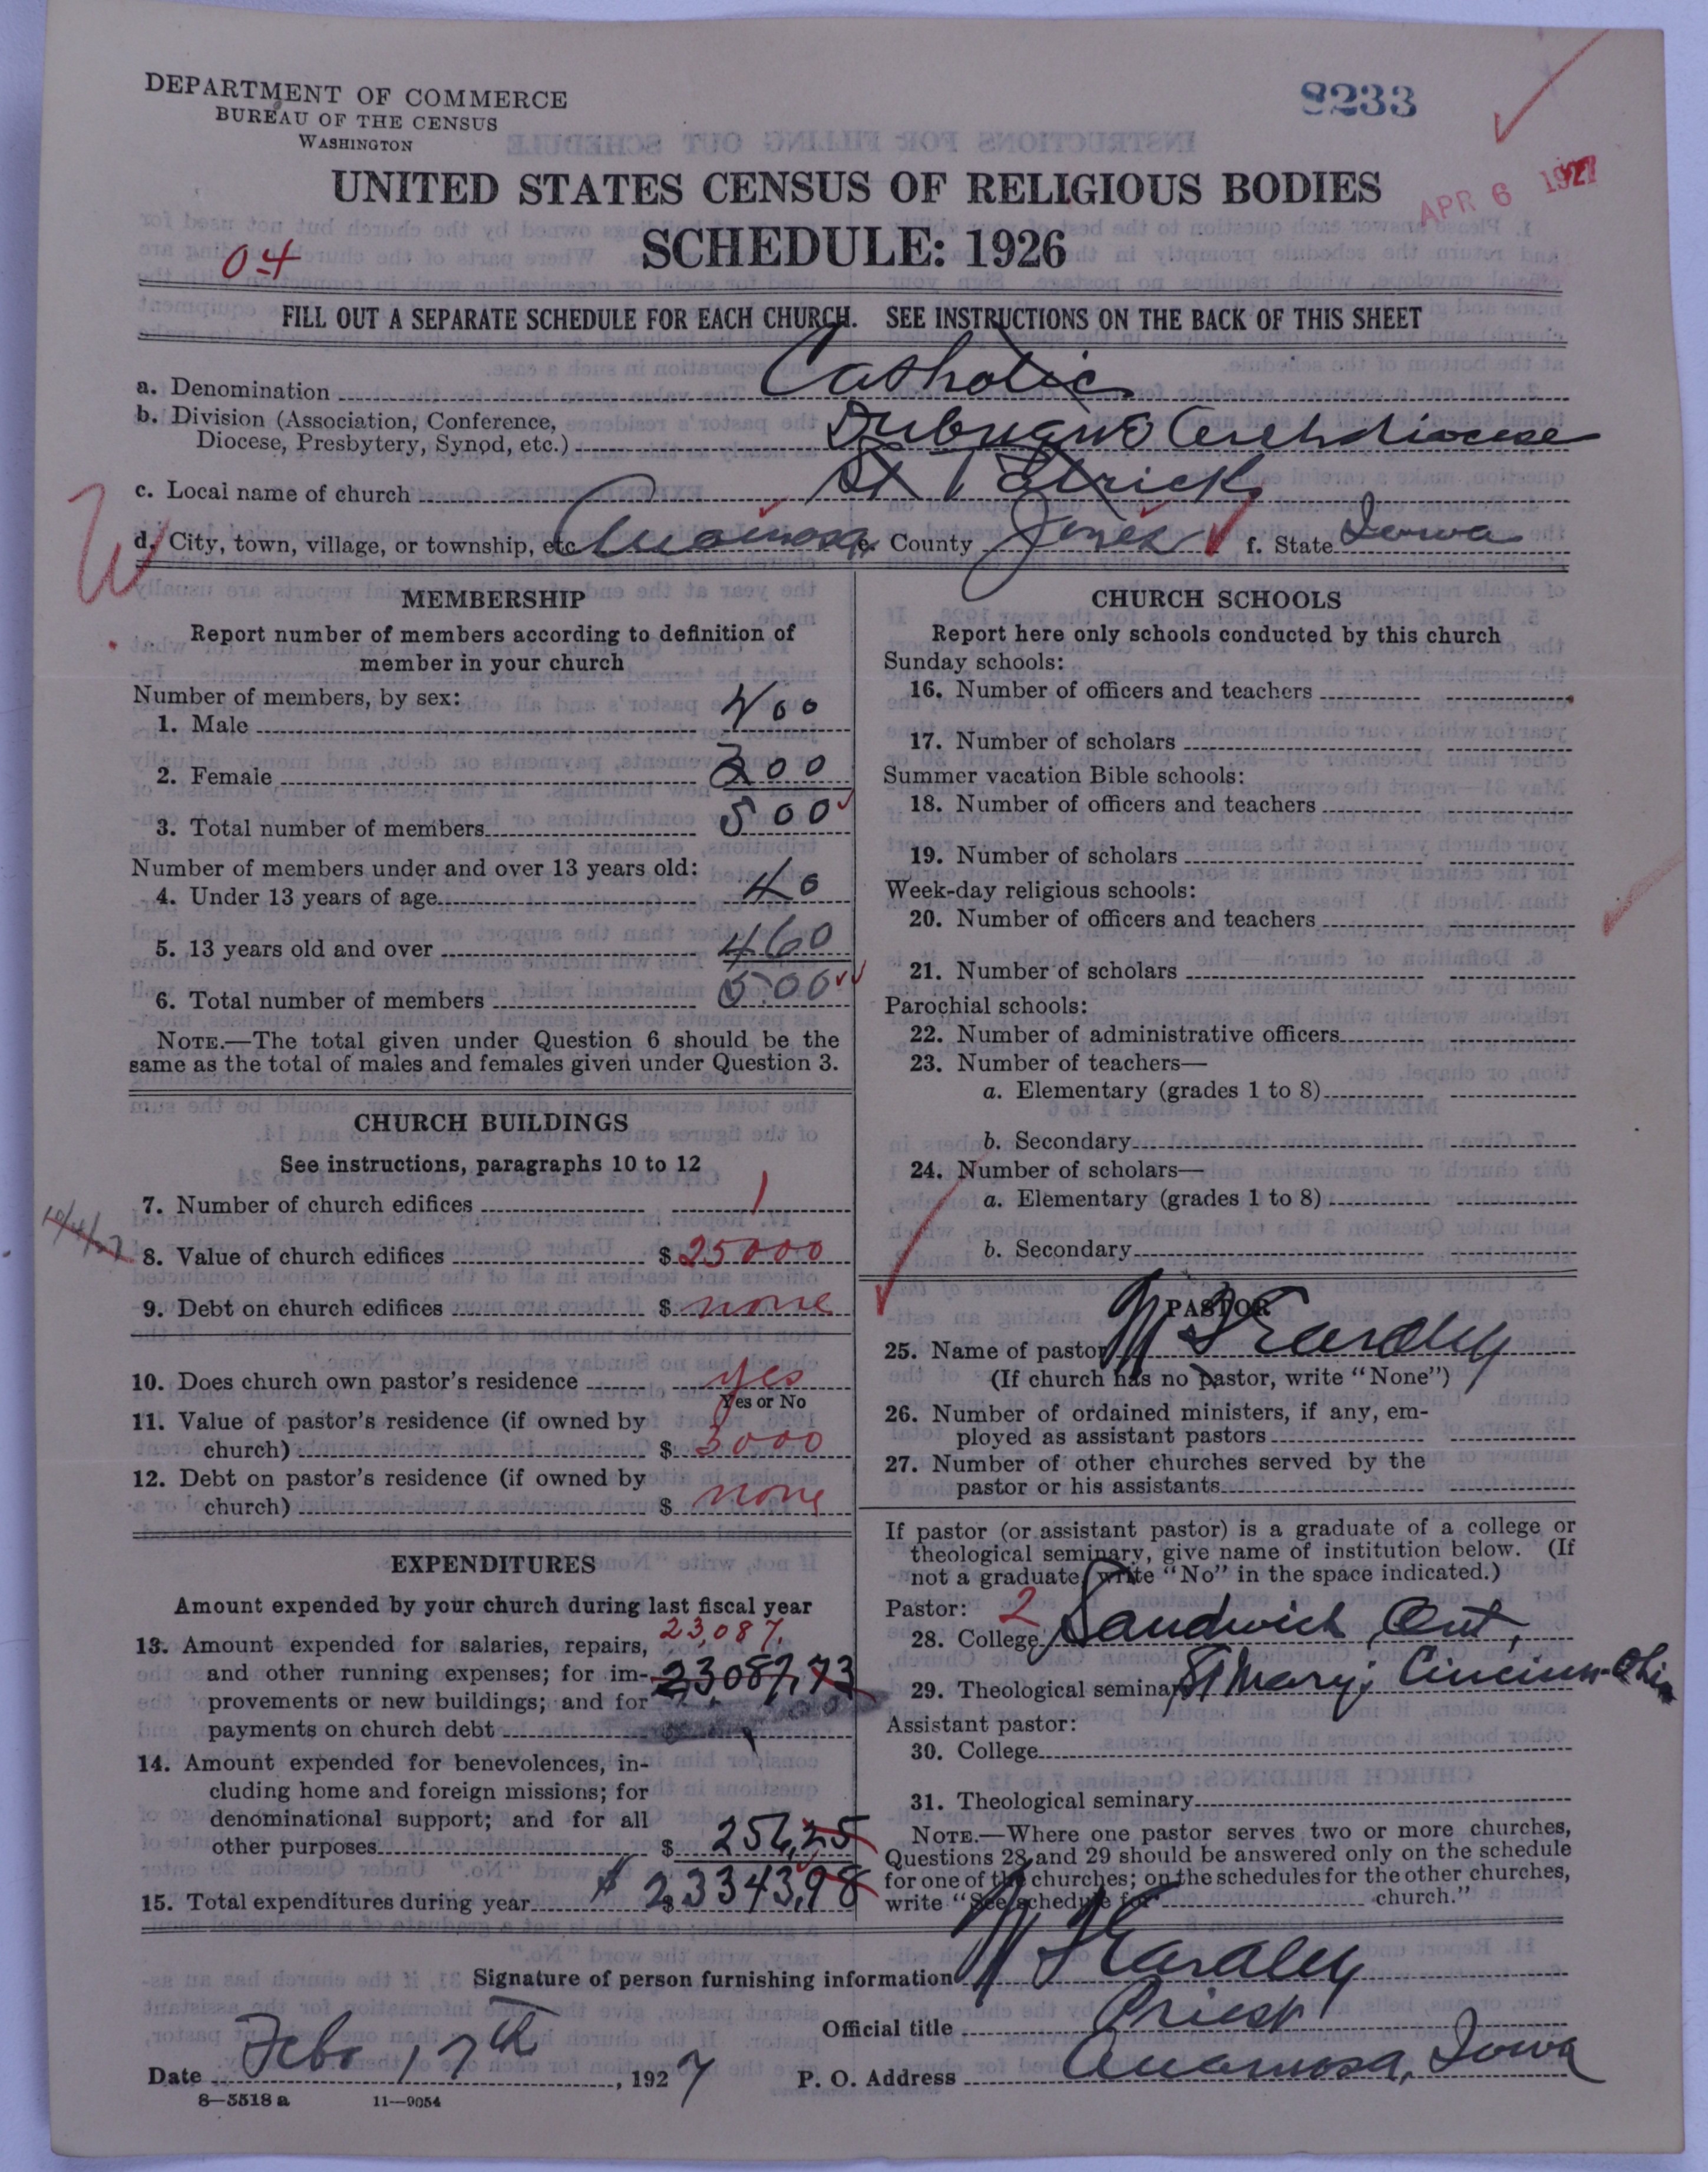 DEPARTMENT OF COMMERCE
BUREAU OF THE CENSUS
WASHINGTON
8233
APR 6 1927
UNITED STATES CENSUS OF RELIGIOUS BODIES
SCHEDULE: 1926
04
FILL OUT A SEPARATE SCHEDULE FOR EACH CHURCH. SEE INSTRUCTIONS ON THE BACK OF THIS SHEET
a. Denomination Catholic
b. Division (Association, Conference,
Diocese, Presbytery, Synod, etc.) Dubuque Archdiocese
c. Local name of church St Patrick
W
d. City, town, village, or township, etc. Anamosa e. County Jones f. State Iowa
MEMBERSHIP
Report number of members according to definition of
member in your church
Number of members, by sex:
1. Male
2. Female 300
3. Total number of members 500
Number of members under and over 13 years old:
4. Under 13 years of age 40
5. 13 years old and over 460
6. Total number of members 500
NOTE.—The total given under Question 6 should be the
same as the total of males and females given under Question 3.
CHURCH BUILDINGS
See instructions, paragraphs 10 to 12
7. Number of church edifices 1
8. Value of church edifices $ 25000
9. Debt on church edifices $ none
10. Does church own pastor's residence yes
Yes or No
11. Value of pastor's residence (if owned by
church) $ 3000
12. Debt on pastor's residence (if owned by
church) $ none
EXPENDITURES
Amount expended by your church during last fiscal year
23,087,
13. Amount expended for salaries, repairs,
and other running expenses; for im- 23,087,73
provements or new buildings; and for
payments on church debt
14. Amount expended for benevolences, in-
cluding home and foreign missions; for
denominational support; and for all
other purposes $ 256,25
15. Total expenditures during year $ 23343,98
CHURCH SCHOOLS
Report here only schools conducted by this church
Sunday schools:
16. Number of officers and teachers
17. Number of scholars
Summer vacation Bible schools:
18. Number of officers and teachers
19. Number of scholars
Week-day religious schools:
20. Number of officers and teachers
21. Number of scholars
Parochial schools:
22. Number of administrative officers
23. Number of teachers—
a. Elementary (grades 1 to 8)
b. Secondary
24. Number of scholars—
a. Elementary (grades 1 to 8)
b. Secondary
PASTOR
25. Name of pastor
(If church has no pastor, write "None")
26. Number of ordained ministers, if any, em-
ployed as assistant pastors
27. Number of other churches served by the
pastor or his assistants
If pastor (or assistant pastor) is a graduate of a college or
theological seminary, give name of institution below. (If
not a graduate, write "No" in the space indicated.)
Pastor: 2
28. College Sandwich, Ont,
29. Theological seminary St Mary, Cincinn-Ohio
Assistant pastor:
30. College
31. Theological seminary
NOTE.—Where one pastor serves two or more churches,
Questions 28 and 29 should be answered only on the schedule
for one of the churches; on the schedules for the other churches,
write "See schedule for church."
Signature of person furnishing information
Official title Priest
Date Feb. 17th, 1927 P. O. Address Anamosa, Iowa
8—5518 a 11—9054